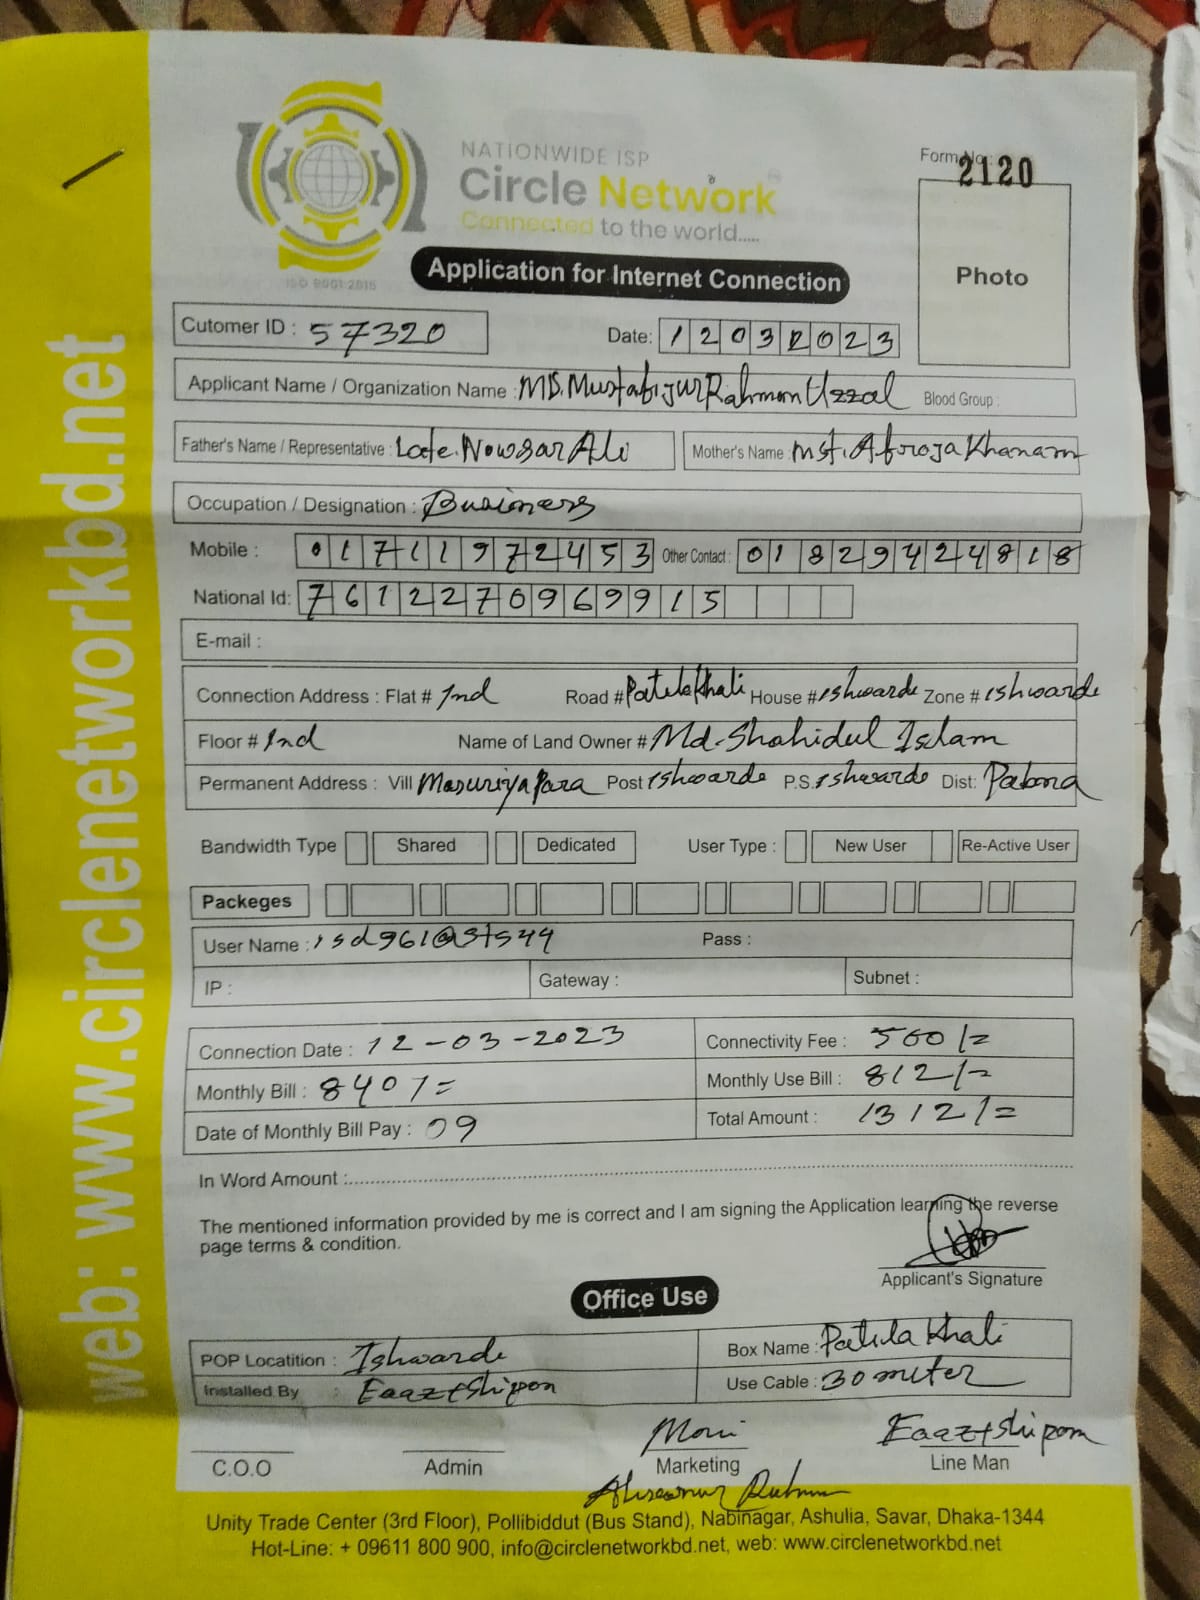 NATIONWIDE ISP
Circle Network
Connected to the world.....
ISO 9001:2015
Form No.: 2120
Photo
Application for Internet Connection
web: www.circlenetworkbd.net
Cutomer ID : 57320 Date: 12032023
Applicant Name / Organization Name : MD. Mustafijur Rahman Uzzal Blood Group :
Father's Name / Representative : Late. Nowsar Ali Mother's Name : Mst. Afroja Khanam
Occupation / Designation : Business
Mobile : 01711972453 Other Contact : 01829424818
National Id: 7612270969915
E-mail :
Connection Address : Flat # 1nd Road # Patilakhali House # ishwarde Zone # ishwarde
Floor # 1nd Name of Land Owner # Md. Shahidul Islam
Permanent Address : Vill Masuriyapara Post ishwarde P.S. ishwarde Dist: Pabna
Bandwidth Type Shared Dedicated User Type : New User Re-Active User
Packeges
User Name : isd961@3ts44 Pass :
IP : Gateway : Subnet :
Connection Date : 12-03-2023 Connectivity Fee : 500/=
Monthly Bill : 840/= Monthly Use Bill : 812/=
Date of Monthly Bill Pay : 09 Total Amount : 1312/=
In Word Amount :
The mentioned information provided by me is correct and I am signing the Application learning the reverse
page terms & condition.
Applicant's Signature
Office Use
POP Locatition : Ishwarde Box Name : Patilakhali
Installed By : Eaaz+Shipon Use Cable : 30 meter
Moni Eaaz+Shipon
C.O.O Admin Marketing Line Man
Unity Trade Center (3rd Floor), Pollibiddut (Bus Stand), Nabinagar, Ashulia, Savar, Dhaka-1344
Hot-Line: + 09611 800 900, info@circlenetworkbd.net, web: www.circlenetworkbd.net